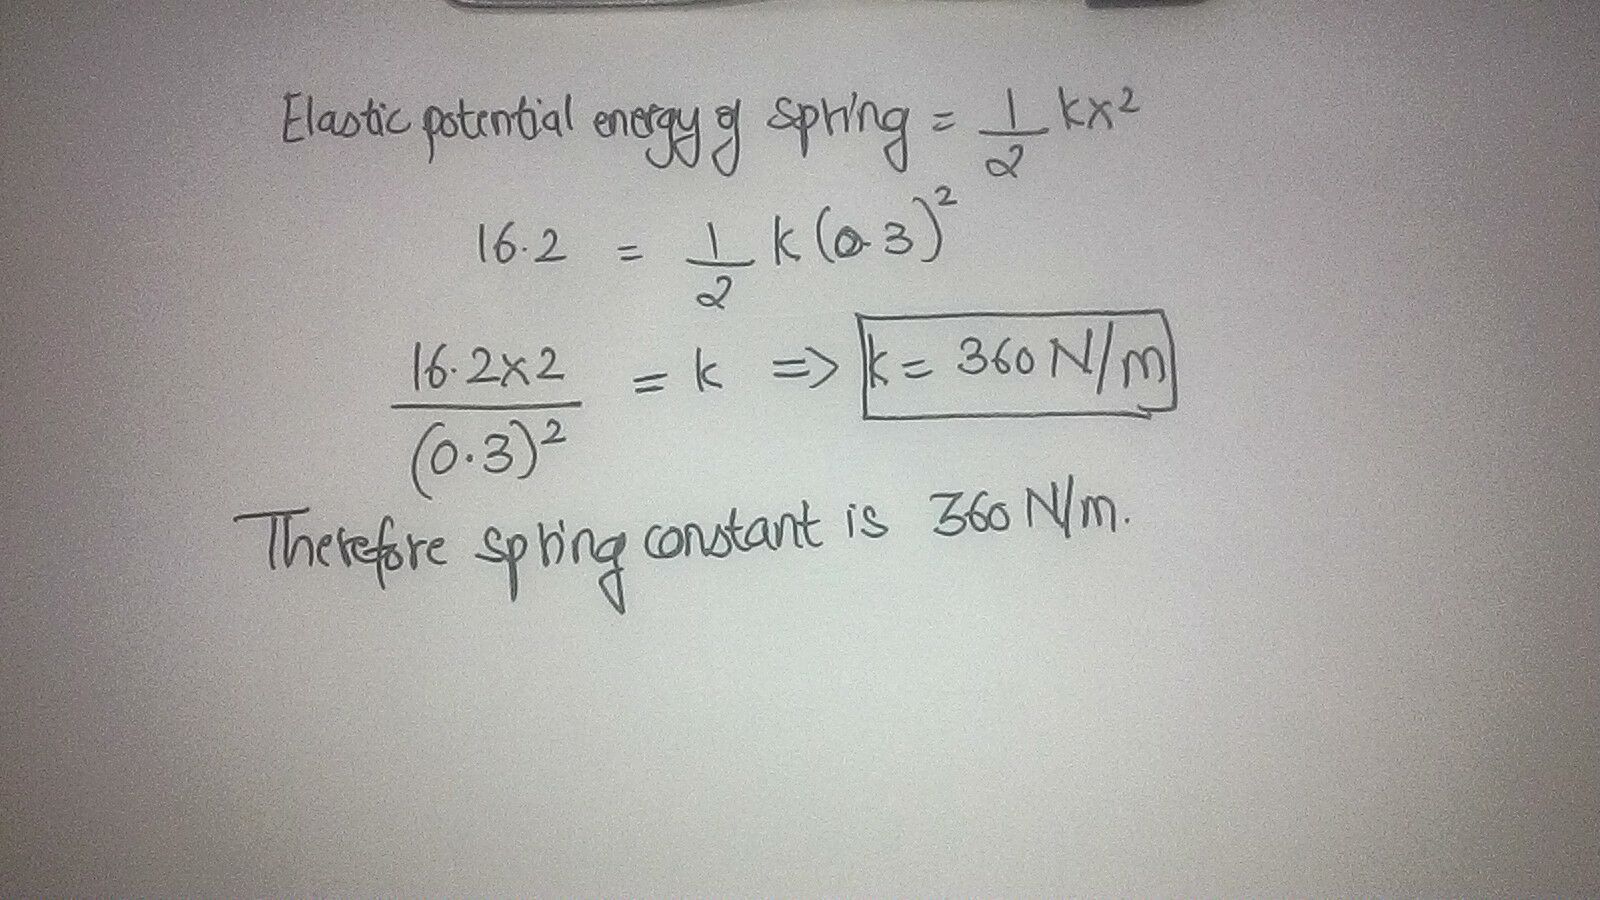 Elastic potential energy of spring = 1/2 kx²
16.2 = 1/2 k(0.3)²
16.2x2/(0.3)² = k => k = 360 N/m
Therefore spring constant is 360 N/m.